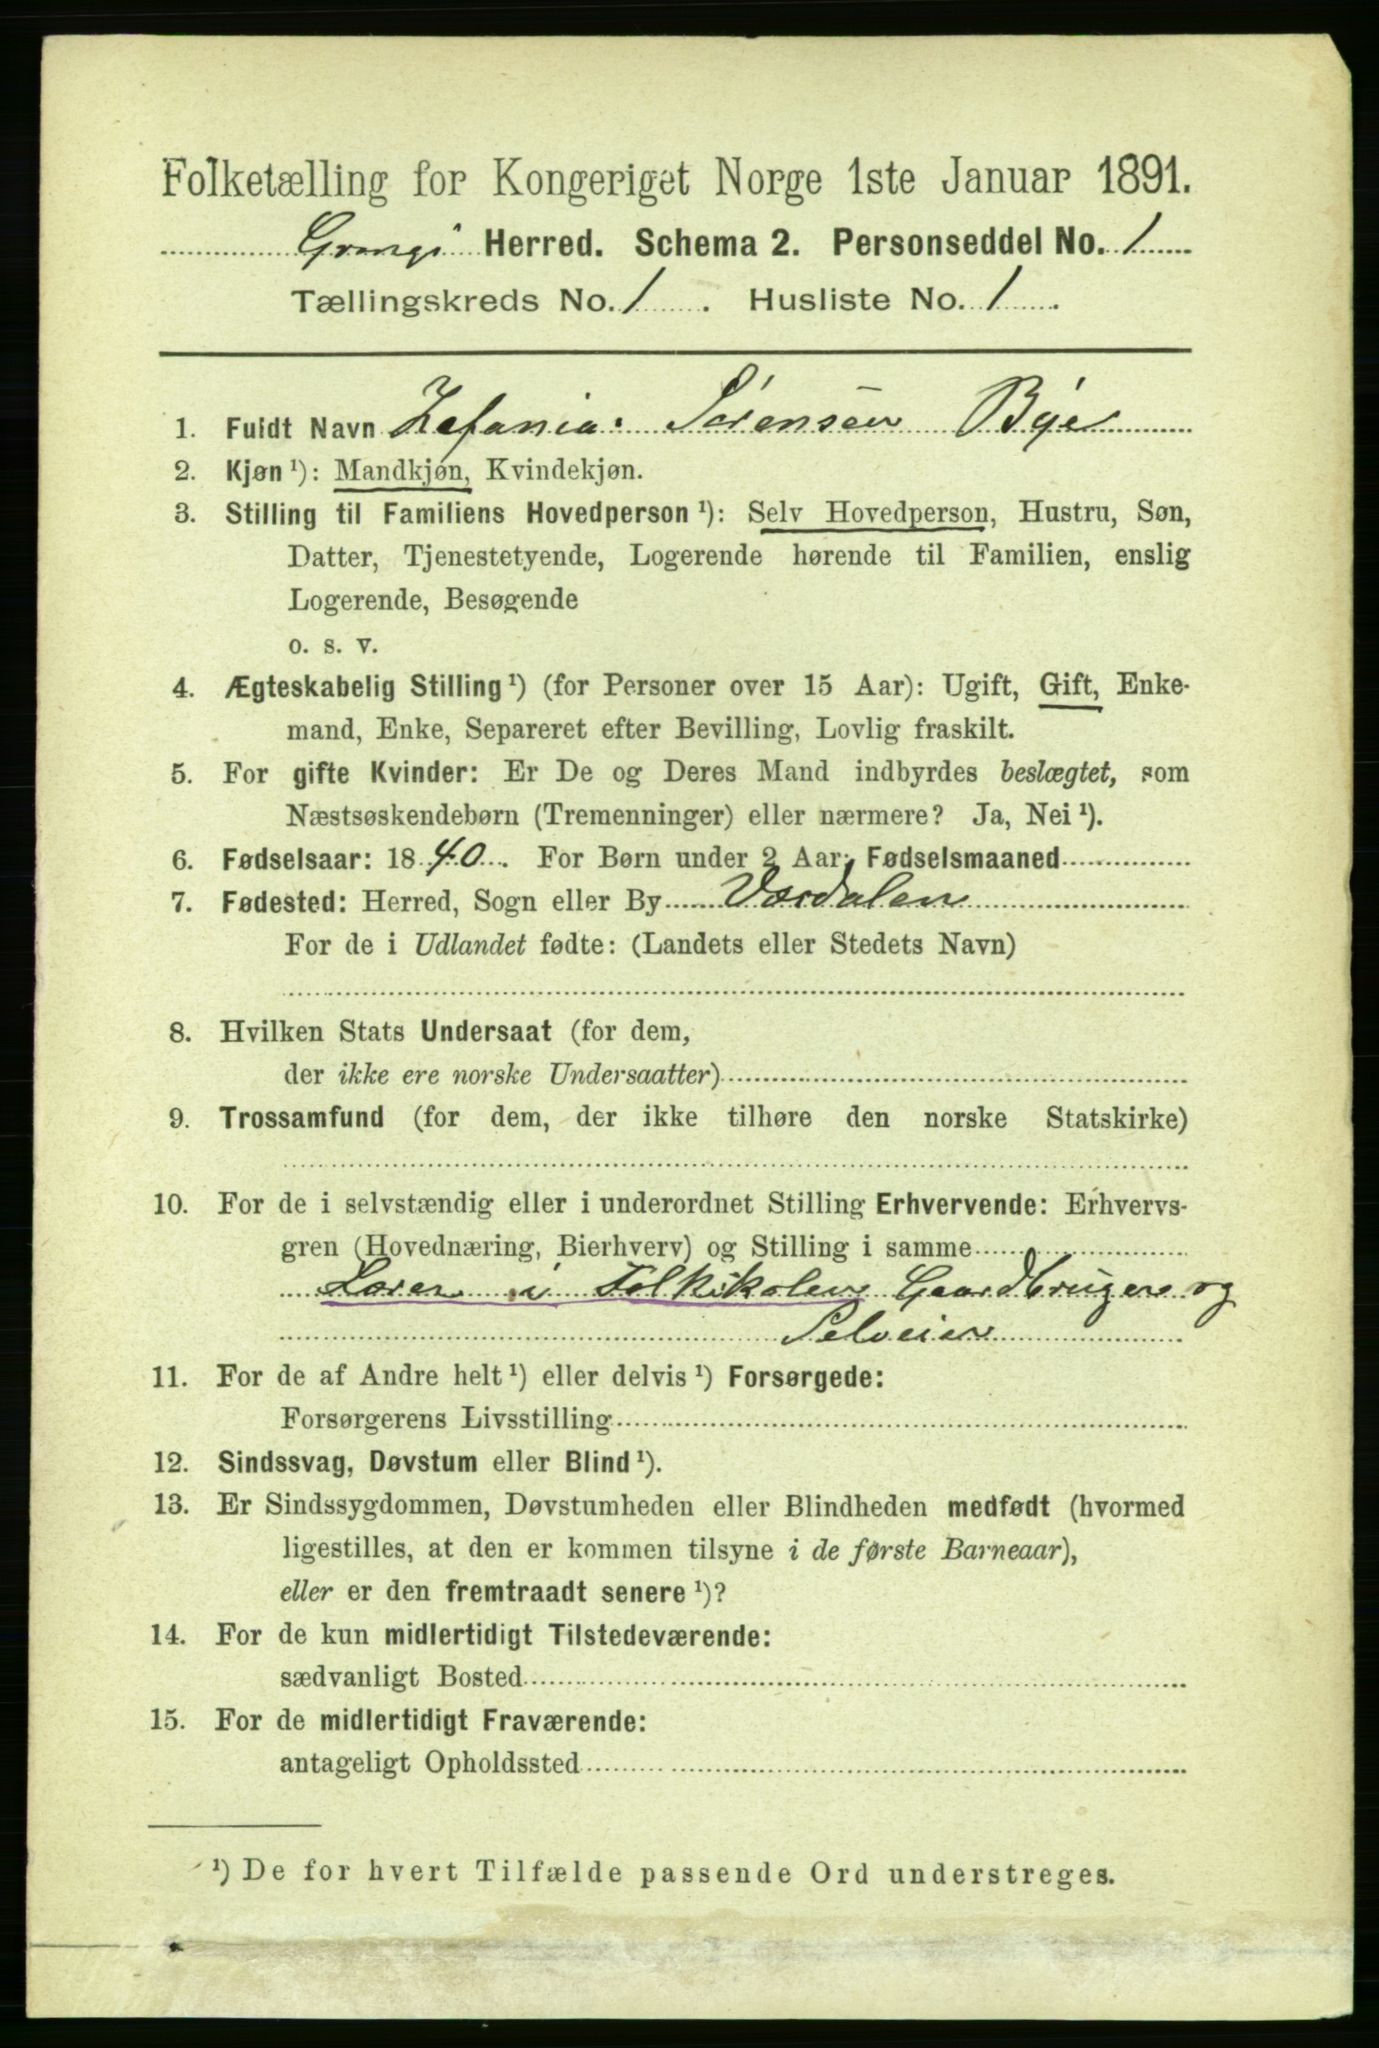 Folketælling for Kongeriget Norge 1ste Januar 1891.
Grong Herred. Schema 2. Personseddel No. 1
Tællingskreds No. 1. Husliste No. 1.
1. Fuldt Navn Zefanias Sørensen Bye
2. Kjøn ¹): Mandkjøn, Kvindekjøn.
3. Stilling til Familiens Hovedperson ¹): Selv Hovedperson, Hustru, Søn,
Datter, Tjenestetyende, Logerende hørende til Familien, enslig
Logerende, Besøgende
o. s. v.
4. Ægteskabelig Stilling ¹) (for Personer over 15 Aar): Ugift, Gift, Enke-
mand, Enke, Separeret efter Bevilling, Lovlig fraskilt.
5. For gifte Kvinder: Er De og Deres Mand indbyrdes beslægtet, som
Næstsøskendebørn (Tremenninger) eller nærmere? Ja, Nei ¹).
6. Fødselsaar: 1840. For Børn under 2 Aar: Fødselsmaaned
7. Fødested: Herred, Sogn eller By Værdalen
For de i Udlandet fødte: (Landets eller Stedets Navn)
8. Hvilken Stats Undersaat (for dem,
der ikke ere norske Undersaatter)
9. Trossamfund (for dem, der ikke tilhøre den norske Statskirke)
10. For de i selvstændig eller i underordnet Stilling Erhvervende: Erhvervs-
gren (Hovednæring, Bierhverv) og Stilling i samme
Lærer i Folkskolen Gaardbruger og
Selveier
11. For de af Andre helt ¹) eller delvis ¹) Forsørgede:
Forsørgerens Livsstilling
12. Sindssvag, Døvstum eller Blind ¹).
13. Er Sindssygdommen, Døvstumheden eller Blindheden medfødt (hvormed
ligestilles, at den er kommen tilsyne i de første Barneaar),
eller er den fremtraadt senere ¹)?
14. For de kun midlertidigt Tilstedeværende:
sædvanligt Bosted
15. For de midlertidigt Fraværende:
antageligt Opholdssted
¹) De for hvert Tilfælde passende Ord understreges.